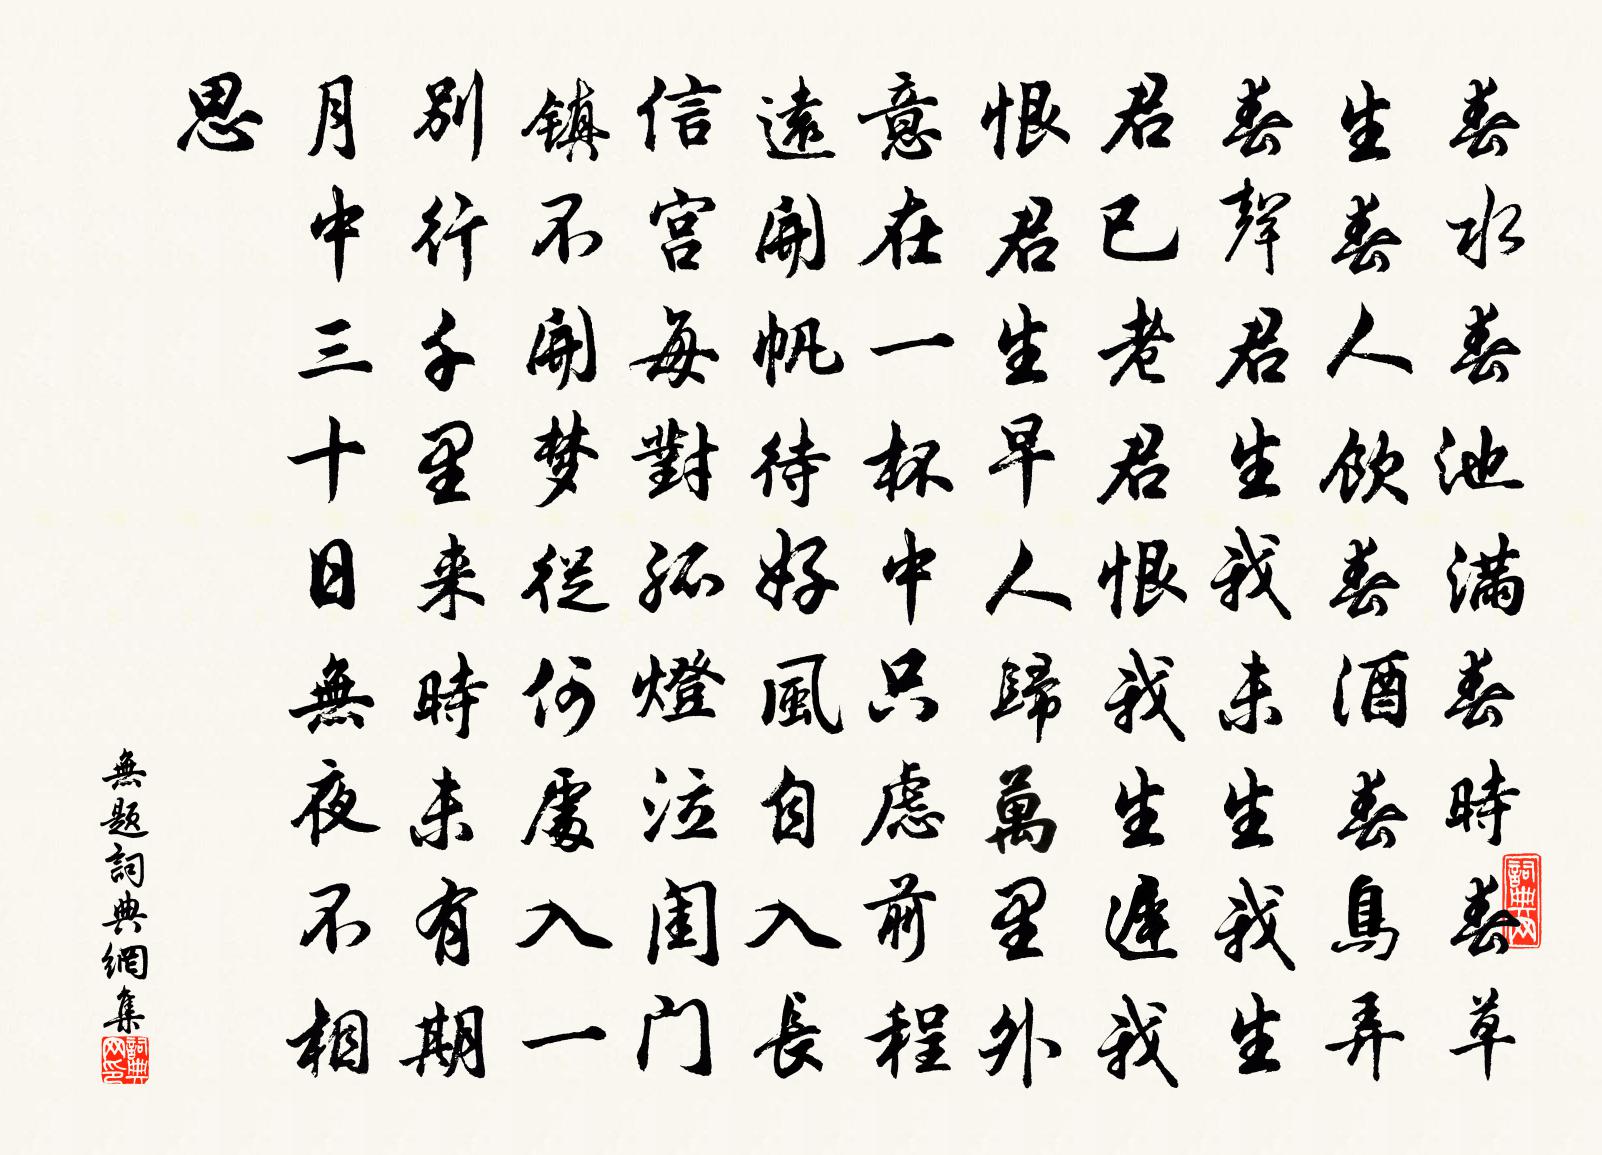 春水春池滿春時春草
生春人飲春酒春鳥弄
春聲君生我未生我生
君已老君恨我生遲我
恨君生早人歸萬里外
意在一杯中只慮前程
遠開帆待好風自入長
信宮每對孤燈泣閨门
镇不開梦從何處入一
别行千里来時未有期
月中三十日無夜不相
思
無題詞典網集
詞典网
詞典网印